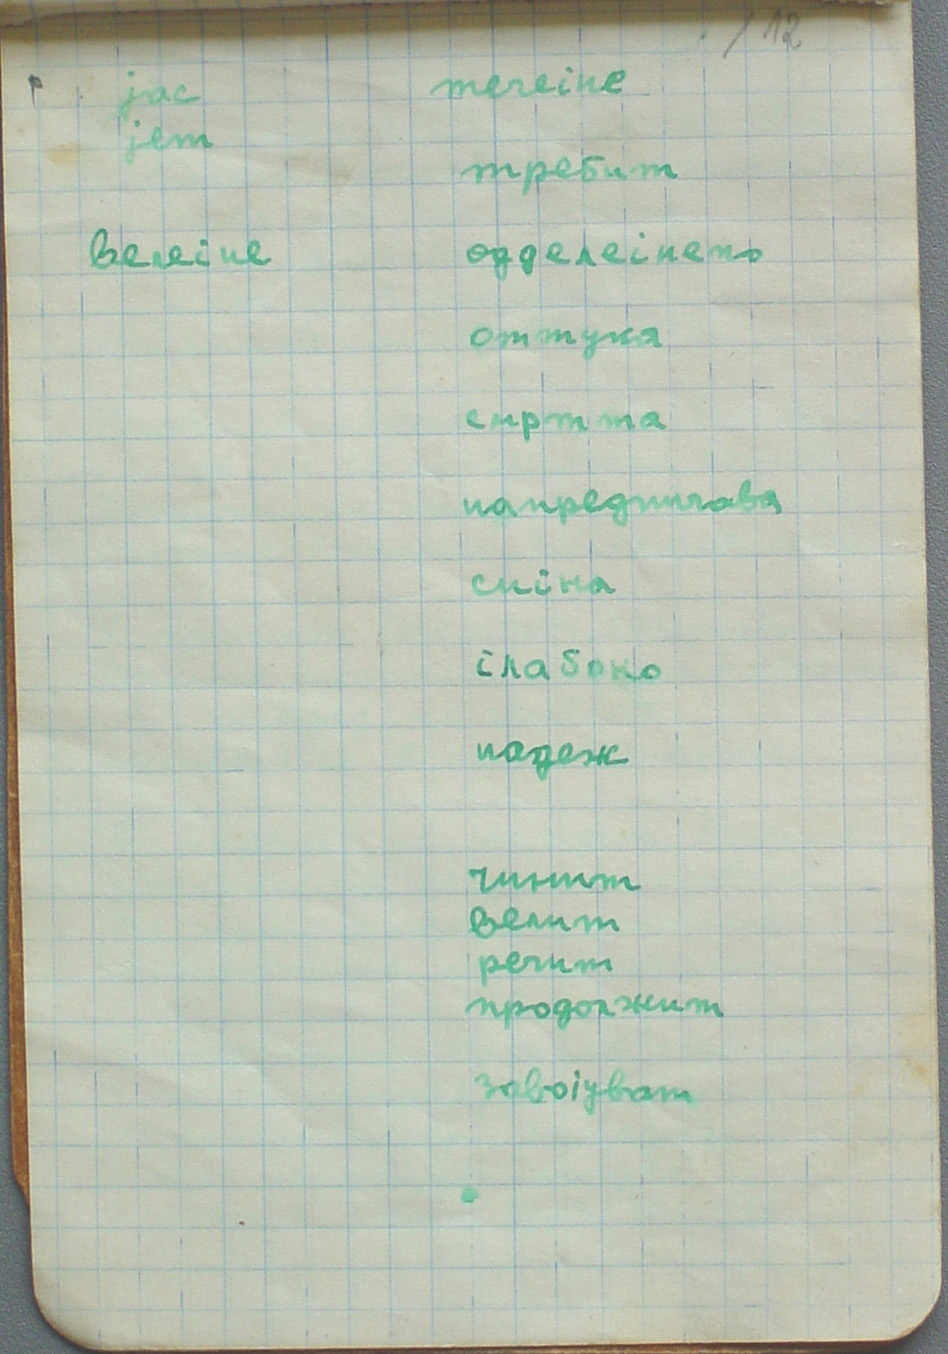 /12
јас течеіне
јет
требит
велеіне одделеінето
оттука
смртта
напредничава
сміна
ілабоко
падеж
чинит
велит
речит
продолжит
завоіуват